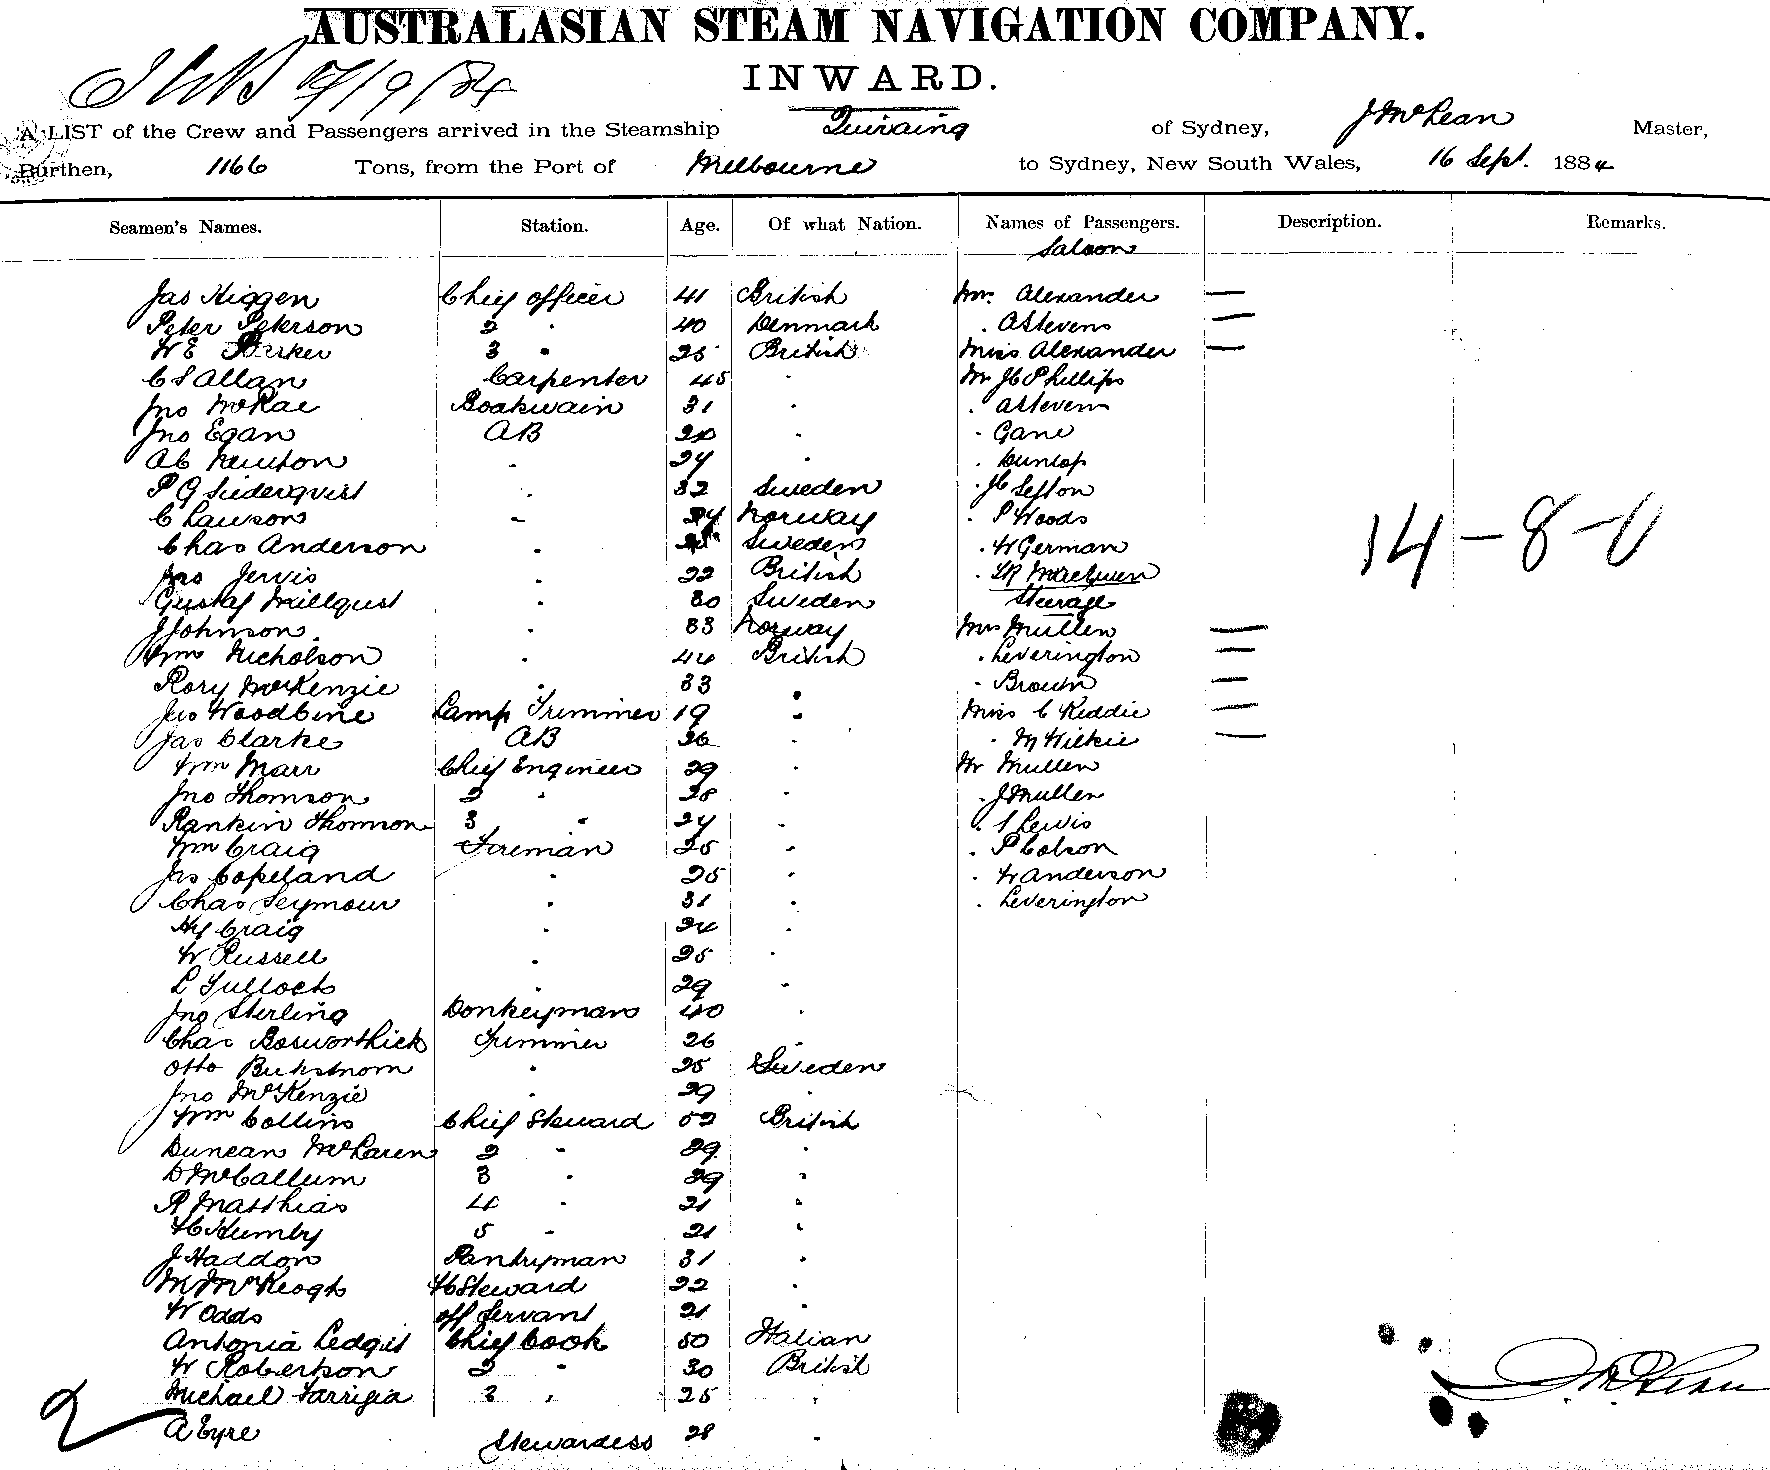 AUSTRALASIAN STEAM NAVIGATION COMPANY.
INWARD.
/9/84
A LIST of the Crew and Passengers arrived in the Steamship Quiraing of Sydney, J McLean Master,
Burthen, 1166 Tons, from the Port of Melbourne to Sydney, New South Wales, 16 Sept. 1884
Seamen's Names. Station. Age. Of what Nation. Names of Passengers. Description. Remarks.
Saloon
Jas Higgen Chief officer 41 British Mr. Alexander —
Peter Peterson 2 . 40 Denmark . A Stevens —
W E Parker 3 . 25 British Miss Alexander —
C S Allan Carpenter 45 . Mr J C Phillips
Jno McRae Boatswain 31 . . A Stevens
Jno Egan AB . . Gane
Ab Newton . 24 . . Dunlop
P G Sederqvist . 32 Sweden . J C Sefton
C Lawson . 24 Norway . P Woods
Chas Anderson . Sweden . W German
Jno Jervis . 22 British .
Gustaf Millqust . 30 Sweden Steerage
J Johnson . 33 Norway Mrs Mullen —
Wm Nicholson . 44 British . Leverington —
Rory McKenzie . 33 . . Brown —
Jas Woodbine Lamp Trimmer 19 . Miss C Keddie —
Jas Clarke AB 26 . . M Wilkie —
Wm Marr Chief Engineer 29 . Mr Mullen
Jno Thomson 2 . 28 . . J Mullen
Rankin Thomson 3 . 24 . . S Lewis
Wm Craig Fireman 25 . . P Colson
Jas Copeland . 25 . . W Anderson
Chas Seymour . 31 . . Leverington
Hy Craig . 24 .
W Russell . 25 .
L Tullock . 29 .
Jno Sterling Donkeyman 40 .
Chas Bosworthick Trimmer 26 .
Otto . 25 Sweden
Jno McKenzie 29 .
Wm Collins Chief Steward 52 British
Duncan McLaren 2 . 29 .
D McCallum 3 . 29 .
R Matthias 4 . 21 .
H C Humby 5 . 21 .
J Haddon Pantryman 31 .
M McKeogh Steward 22 .
W Odds off Servant 21 .
Antonia Chief Cook 50 Italian
W Robertson 2 . 30 British
Michael Farrigia 3 . 25 .
A Eyre Stewardess 28 .
14-8-0
J McLean
2